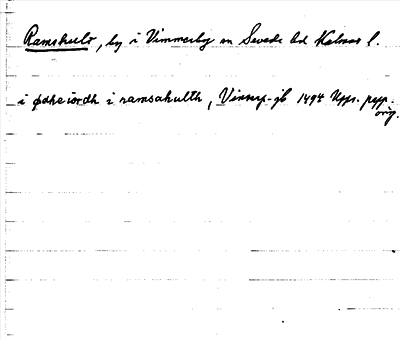 Ramshult, by i Vimmerby sn Sevede hd Kalmar l.
i ødheiordh i ramsahulth, Vinstorp-jb 1494 Upps. papp.
orig.